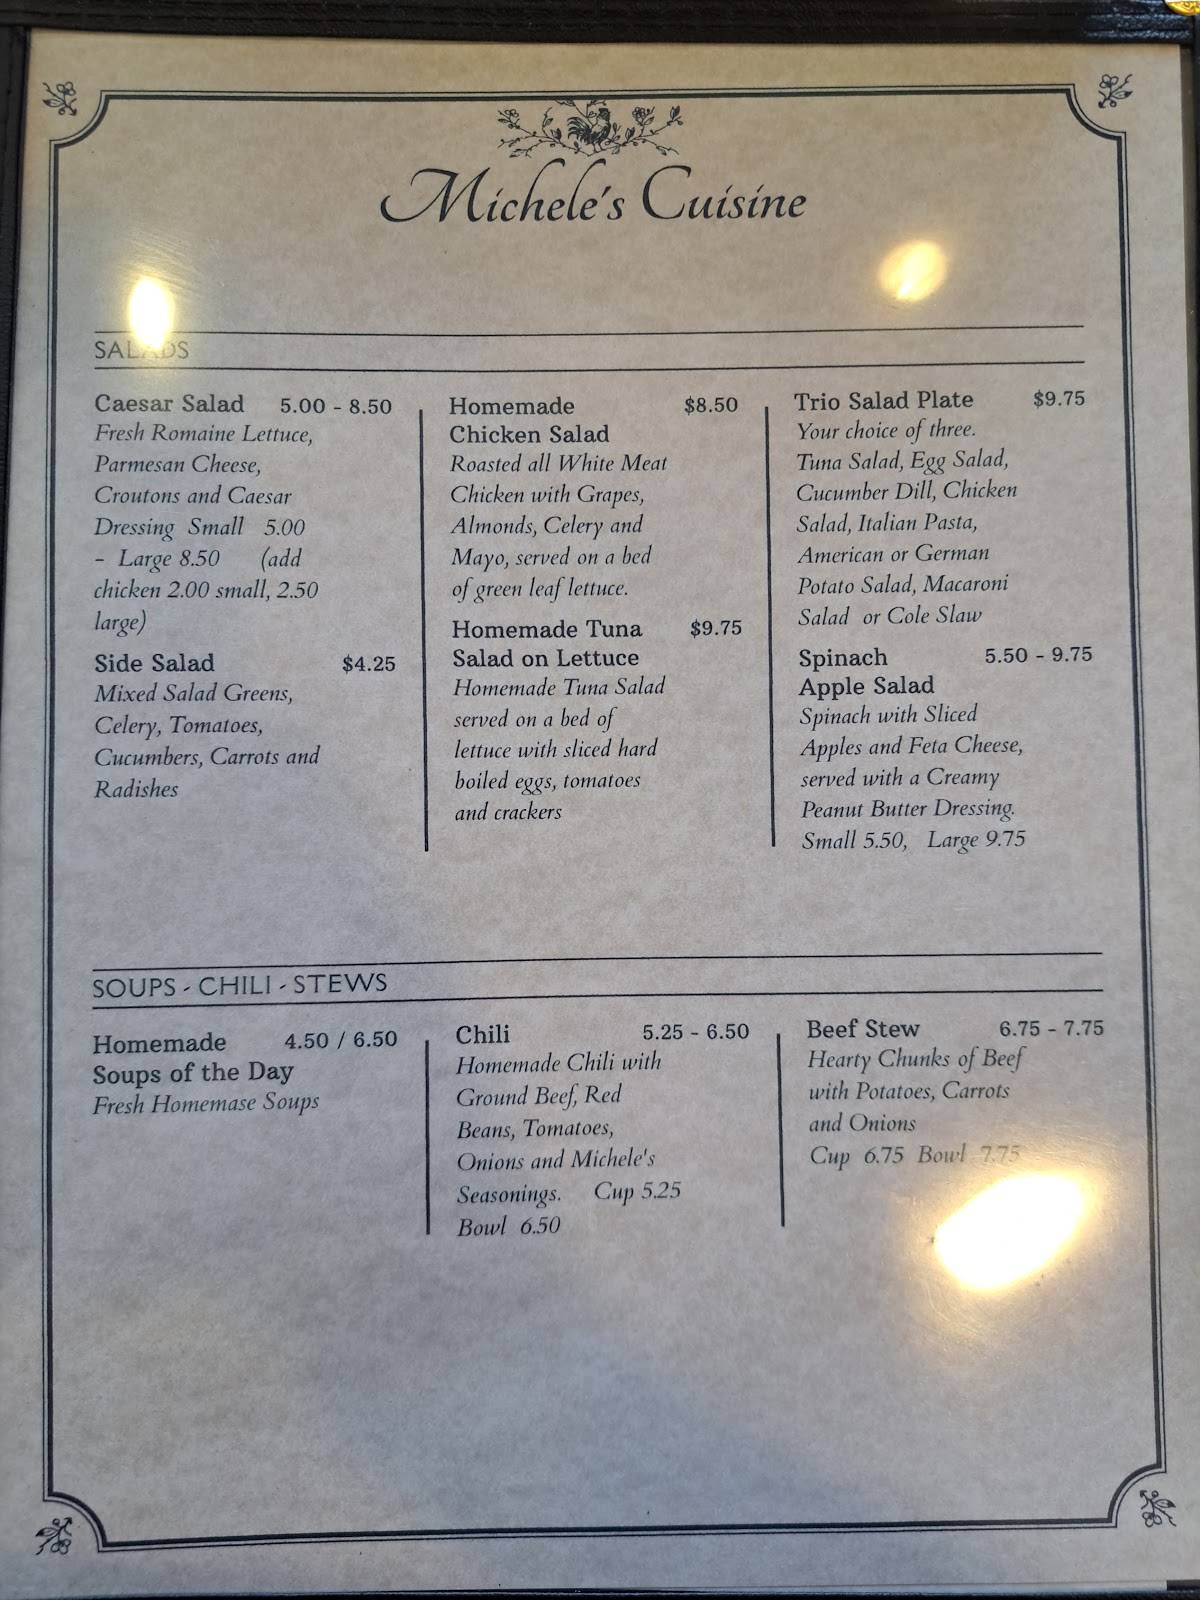 Michele's Cuisine
SALADS
Caesar Salad 5.00 - 8.50
Fresh Romaine Lettuce,
Parmesan Cheese,
Croutons and Caesar
Dressing Small 5.00
- Large 8.50 (add
chicken 2.00 small, 2.50
large)
Side Salad $4.25
Mixed Salad Greens,
Celery, Tomatoes,
Cucumbers, Carrots and
Radishes
Homemade $8.50
Chicken Salad
Roasted all White Meat
Chicken with Grapes,
Almonds, Celery and
Mayo, served on a bed
of green leaf lettuce.
Homemade Tuna $9.75
Salad on Lettuce
Homemade Tuna Salad
served on a bed of
lettuce with sliced hard
boiled eggs, tomatoes
and crackers
Trio Salad Plate $9.75
Your choice of three.
Tuna Salad, Egg Salad,
Cucumber Dill, Chicken
Salad, Italian Pasta,
American or German
Potato Salad, Macaroni
Salad or Cole Slaw
Spinach 5.50 - 9.75
Apple Salad
Spinach with Sliced
Apples and Feta Cheese,
served with a Creamy
Peanut Butter Dressing.
Small 5.50, Large 9.75
SOUPS - CHILI - STEWS
Homemade 4.50 / 6.50
Soups of the Day
Fresh Homemase Soups
Chili 5.25 - 6.50
Homemade Chili with
Ground Beef, Red
Beans, Tomatoes,
Onions and Michele's
Seasonings. Cup 5.25
Bowl 6.50
Beef Stew 6.75 - 7.75
Hearty Chunks of Beef
with Potatoes, Carrots
and Onions
Cup 6.75 Bowl 7.75